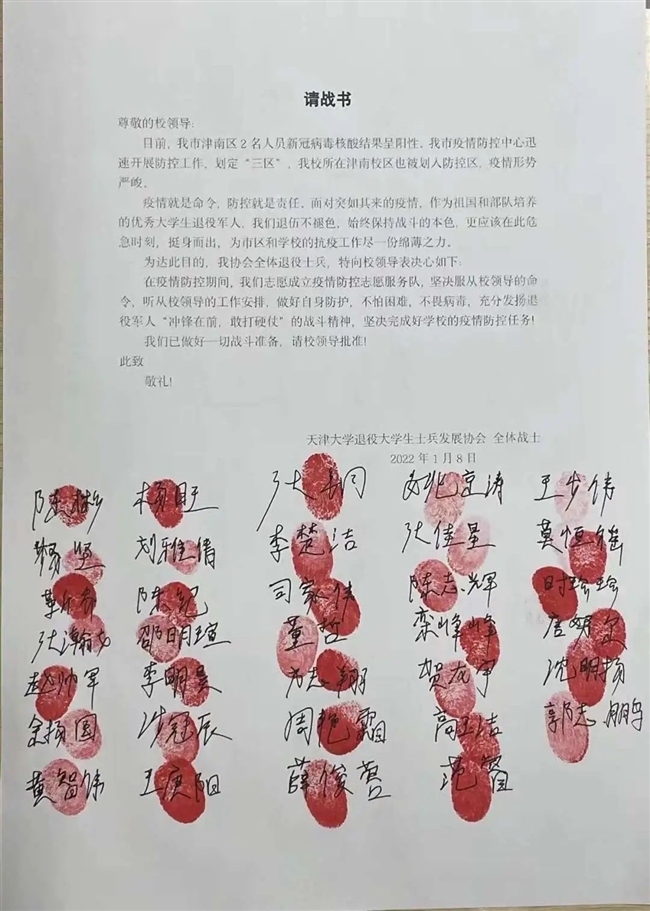 请战书
尊敬的校领导:
目前，我市津南区2名人员新冠病毒核酸结果呈阳性。我市疫情防控中心迅
速开展防控工作，划定“三区”，我校所在津南校区也被划入防控区，疫情形势
严峻。
疫情就是命令，防控就是责任。面对突如其来的疫情，作为祖国和部队培养
的优秀大学生退役军人，我们退伍不褪色，始终保持战斗的本色，更应该在此危
急时刻，挺身而出，为市区和学校的抗疫工作尽一份绵薄之力。
为达此目的，我协会全体退役士兵，特向校领导表决心如下:
在疫情防控期间，我们志愿成立疫情防控志愿服务队，坚决服从校领导的命
令，听从校领导的工作安排，做好自身防护，不怕困难，不畏病毒，充分发扬退
役军人“冲锋在前，敢打硬仗”的战斗精神，坚决完成好学校的疫情防控任务!
我们已做好一切战斗准备，请校领导批准!
此致
敬礼!
天津大学退役大学生士兵发展协会 全体战士
2022年1月8日
杨旺 王步伟
杨坚 刘雅倩 李楚洁 张佳星 莫恒继
陈纪 司家伟 陈志辉 时珍珍
邵明瑄 董哲 栾峰峰
赵帅军 李明昊 贺龙宇 沈明扬
余扬国 周艳霜 高玉洁 郭志鹏
黄智伟 王庚阳 薛俊茜 范蜜